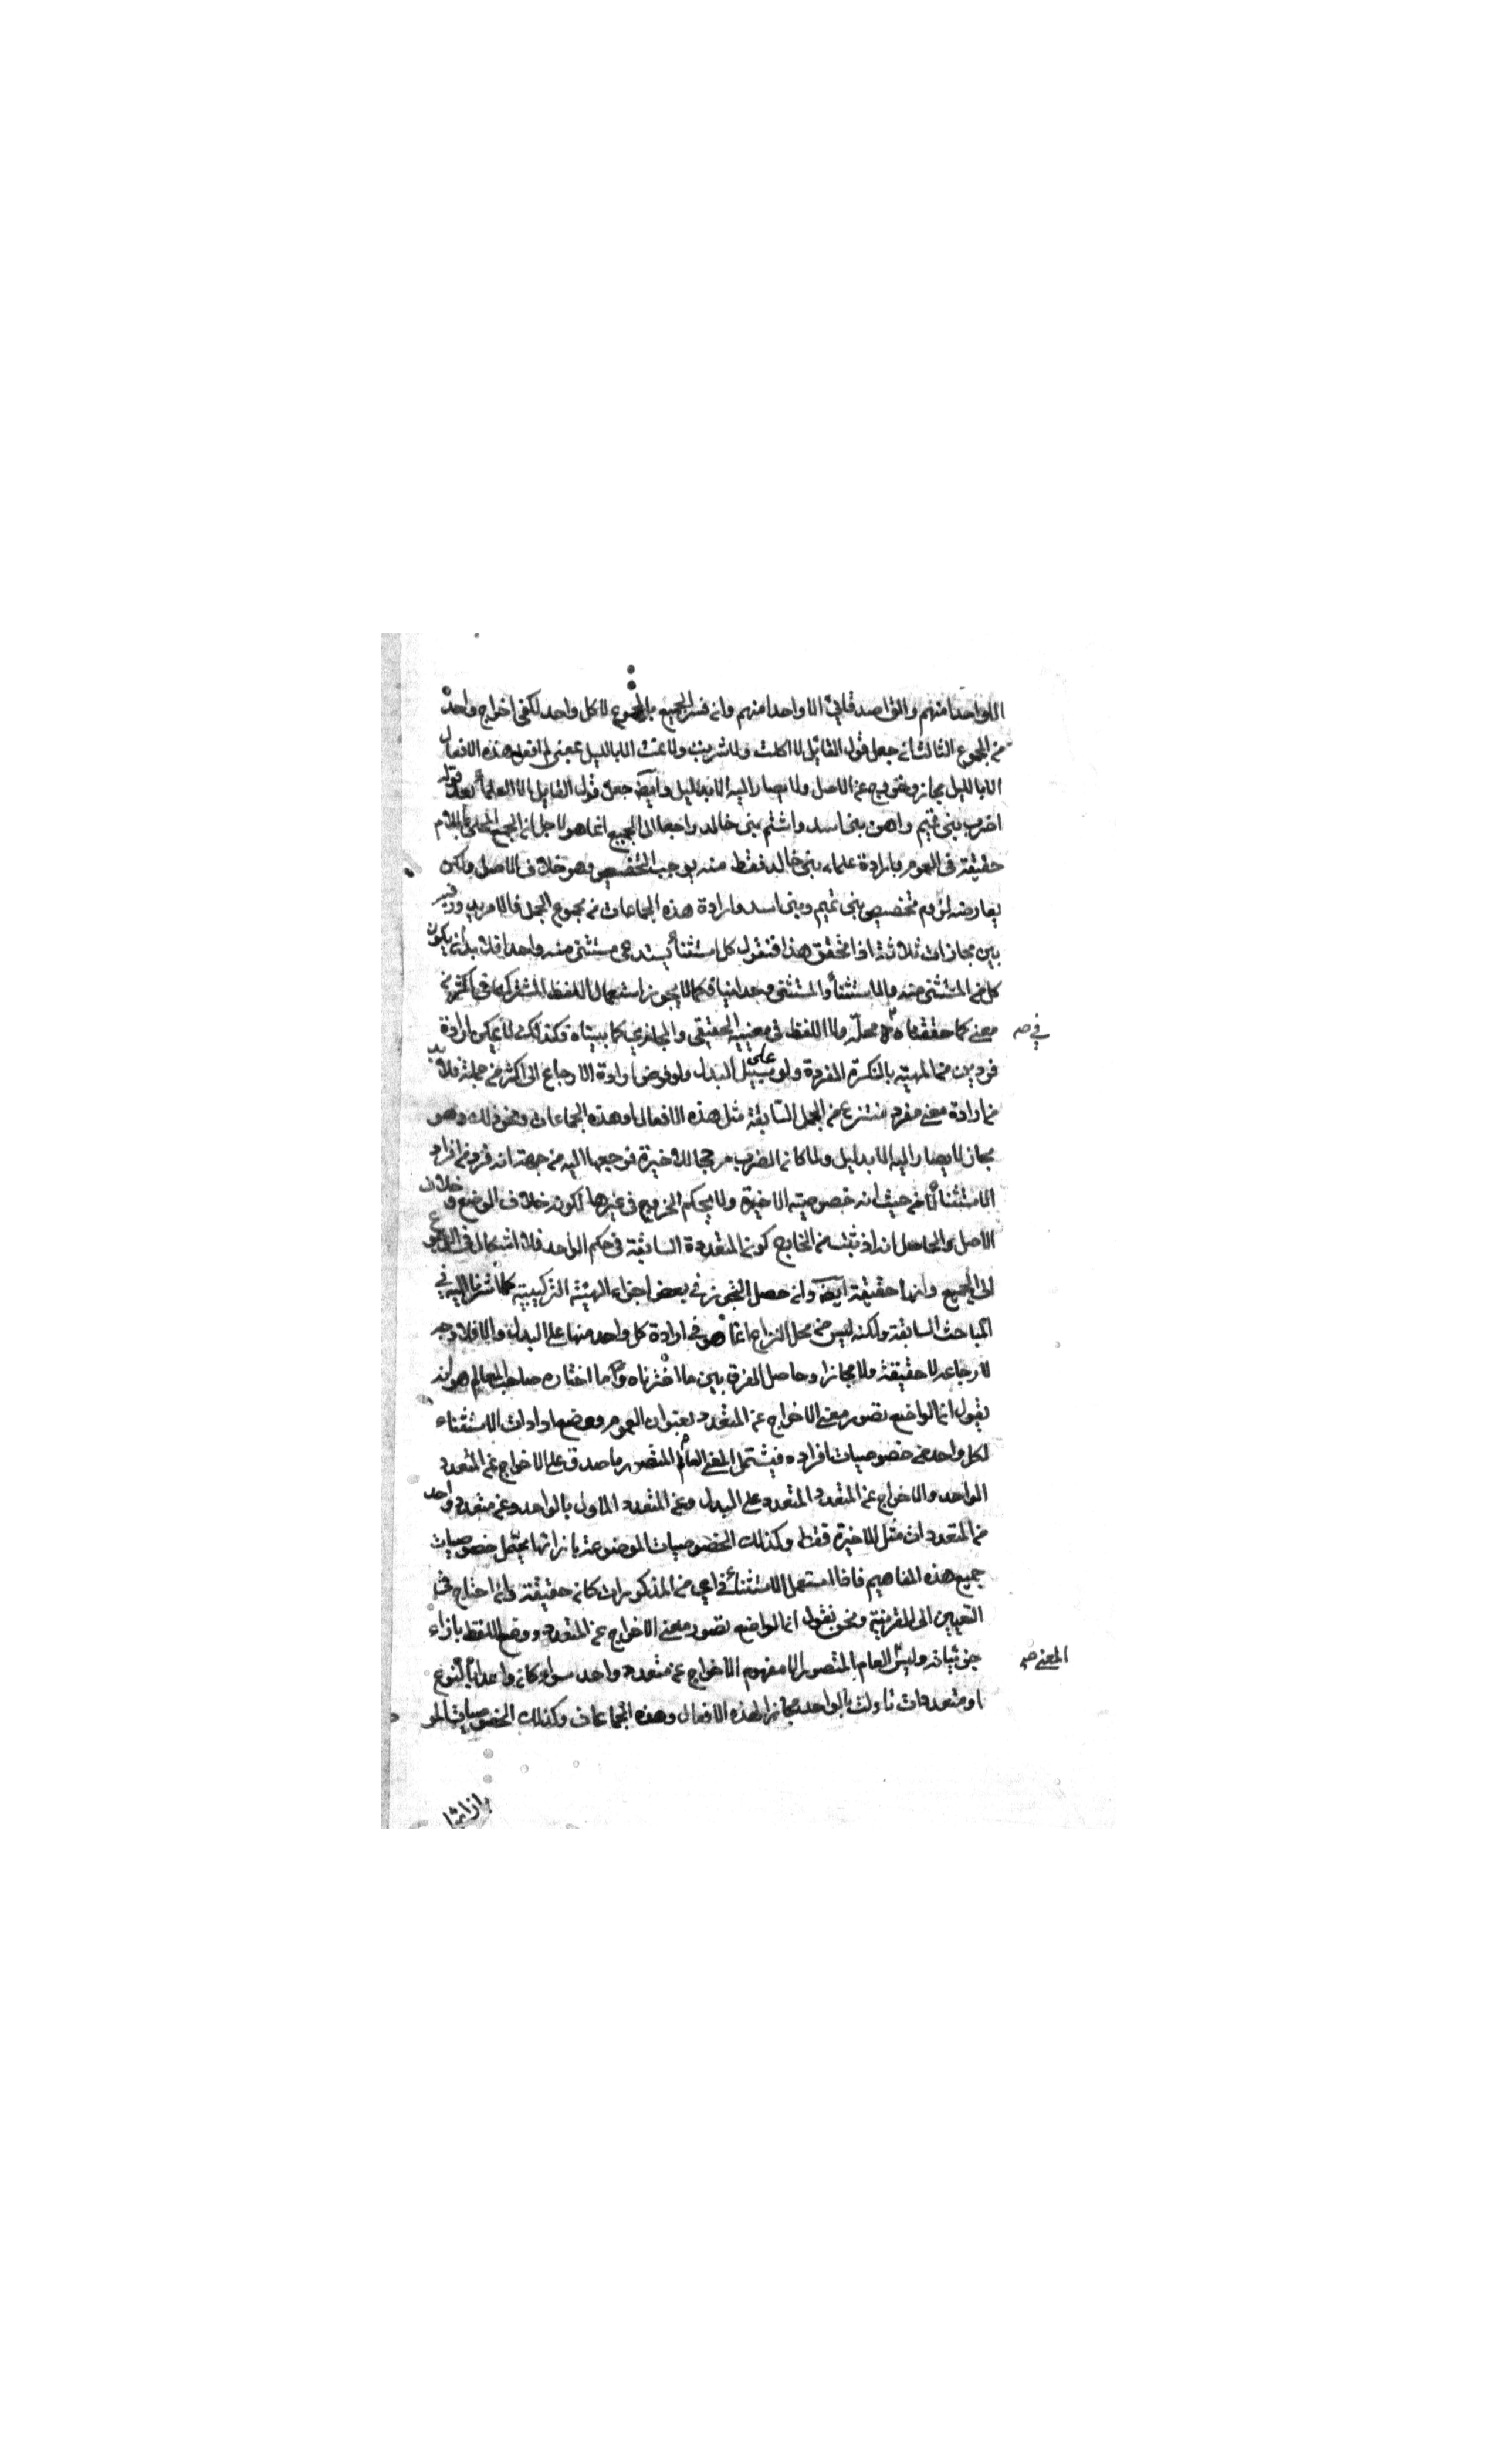 الا واحدا منهم والقاصد قلبى الا واحدا منهم وان فسر الجميع بالمجموع لا كل واحد لكفى اخراج واحد
من المجموع الثالث ان جعل قول القائل لا اكلت ولا شربت ولا نمت الا بالليل بمعنى لم افعل هذه الافعال
الا بالليل مجاز وخروج عن الاصل ولا يصار اليه الا بدليل وايضا جعل قول القايل الا العلماء بعد قوله
اضرب بنى تميم واهن بنى اسد واشتم بنى خالد راجعا الى الجميع انما هو لاجل ان الجمع المحلى باللام
حقيقة فى العموم وارادة علماء بنى خالد فقط منه يوجب التخصيص وهو خلاف الاصل ولكن
يعارضه لزوم تخصيص بنى تميم وبنى اسد وارادة هذه الجماعات من مجموع الجمل فالامر يدور فيه
بين مجازات ثلاثة اذا تحقق هذا فنقول كل استثناء يستدعى مستثنى منه واحدا فلا بد ان يكون
كل من المستثنى منه والاستثناء والمستثنى وحدانيا فكما لا يجوز استعمال اللفظ المشترك فى اكثر من
معنى كما حققناه فى محله ولا اللفظ فى معنييه الحقيقى والمجازى كما بيناه فكذلك لا يمكن ارادة
فى صح
فردين من المهية بالنكرة المفردة ولو على سبيل البدل ولو فرض ارادة الارجاع الى اكثر من جملة فلا بد
من ارادة معنى مفرد منتزع من الجمل السابقة مثل هذه الافعال او هذه الجماعات ونحو ذلك وهو
مجاز لا يصار اليه الا بدليل ولما كان القرب مرجحا للاخيرة فرجعها اليه من جهة انه فرد من افراد
الاستثناء لا من حيث انه خصوصية الاخيرة ولا يحكم بالخروج فى غيرها لكونه خلاف الوضع وخلاف
الاصل والحاصل انه اذ ثبت من الخارج كون المتعددة السابقة فى حكم الواحد فلا اشكال فى الرجوع
الى الجميع وانها حقيقة ايضا وان حصل التجوز فى بعض اجزاء الهيئة التركيبية كما اشرنا اليه فى
المباحث السابقة ولكنه ليس من محل النزاع انما هو فى ارادة كل واحد منها على البدل والا فلا وجه
لارجاعه لا حقيقة ولا مجازا وحاصل الفرق بين ما اخترناه وما اختاره صاحب المعالم هو انه
يقول ان الواضع تصور معنى الاخراج عن المتعدد بعنوان العموم ووضع ادوات الاستثناء
لكل واحد من خصوصيات افراده فيشتمل المعنى العام المتصور ما صدق على الاخراج عن المتعدد
الواحد والاخراج عن المتعدد المتعدد على البدل وعن المتعدد الماول بالواحد وعن متعدد واحد
من المتعددات مثل الاخيرة فقط وكذلك الخصوصيات الموضوعة بازائها يحتمل خصوصيات
جميع هذه المفاهيم فاذا استعمل الاستثناء فى اى من المذكورات كان حقيقة وان احتاج فى
التعيين الى القرينة ونحن نقول ان الواضع تصور معنى الاخراج عن المتعدد ووضع اللفظ بازاء
جزئياته وليس العام المتصور الا مفهوم الاخراج عن متعدد واحد سواء كان واحدا بالنوع
المعنى صح
او متعددات تاولت بالواحد مجازا كهذه الافعال وهذه الجماعات وكذلك الخصوصيات المو
بازائها